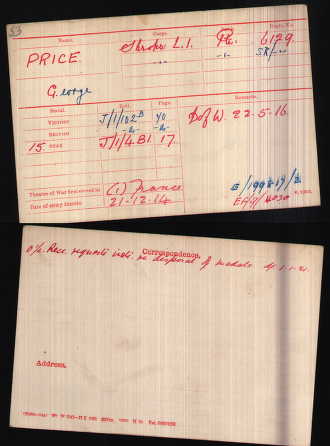 Name. Corps. Rank. Regtl. No.
PRICE. Shrops L.I. Pte. 6129
-"- -1- SR/-"-
George
Medal. Roll. Page. Remarks.
VICTORY J/1/102 B 40 D of W. 22-5-16.
BRITISH -do- -do-
15 STAR J/1/4 B1 17.
Theatre of War first served in (1) France
Date of entry therein 21-12-14
E/1998-19/2
EF/9/4030
Correspondence.
O i/c Recs. requests instr. re disposal of medals 1-1-21.
Address.